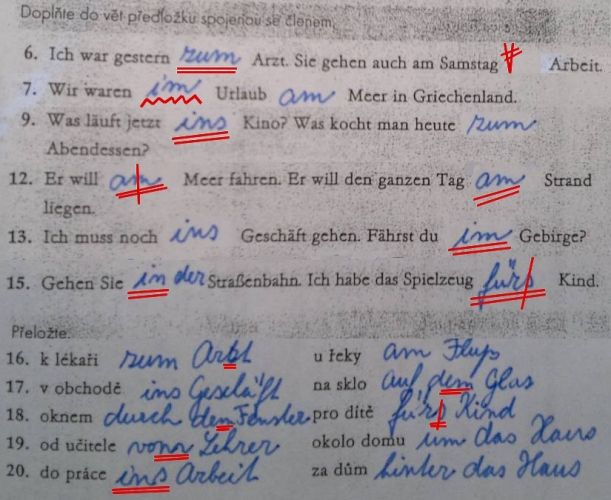 Doplňte do vět předložku spojenou se členem.
6. Ich war gestern zum Arzt. Sie gehen auch am Samstag Arbeit.
7. Wir waren im Urlaub am Meer in Griechenland.
9. Was läuft jetzt ins Kino? Was kocht man heute zum
Abendessen?
12. Er will am Meer fahren. Er will den ganzen Tag am Strand
liegen.
13. Ich muss noch ins Geschäft gehen. Fährst du im Gebirge?
15. Gehen Sie in der Straßenbahn. Ich habe das Spielzeug fürs Kind.
Přeložte:
16. k lékaři zum Arbt u řeky am Fluß
17. v obchodě ins Geseläft na sklo auf dem Glas
18. oknem durch dem Fenster pro dítě fürs Kind
19. od učitele vonn Lehrer okolo domu um das Haus
20. do práce ins Arbeit za dům hinter das Haus